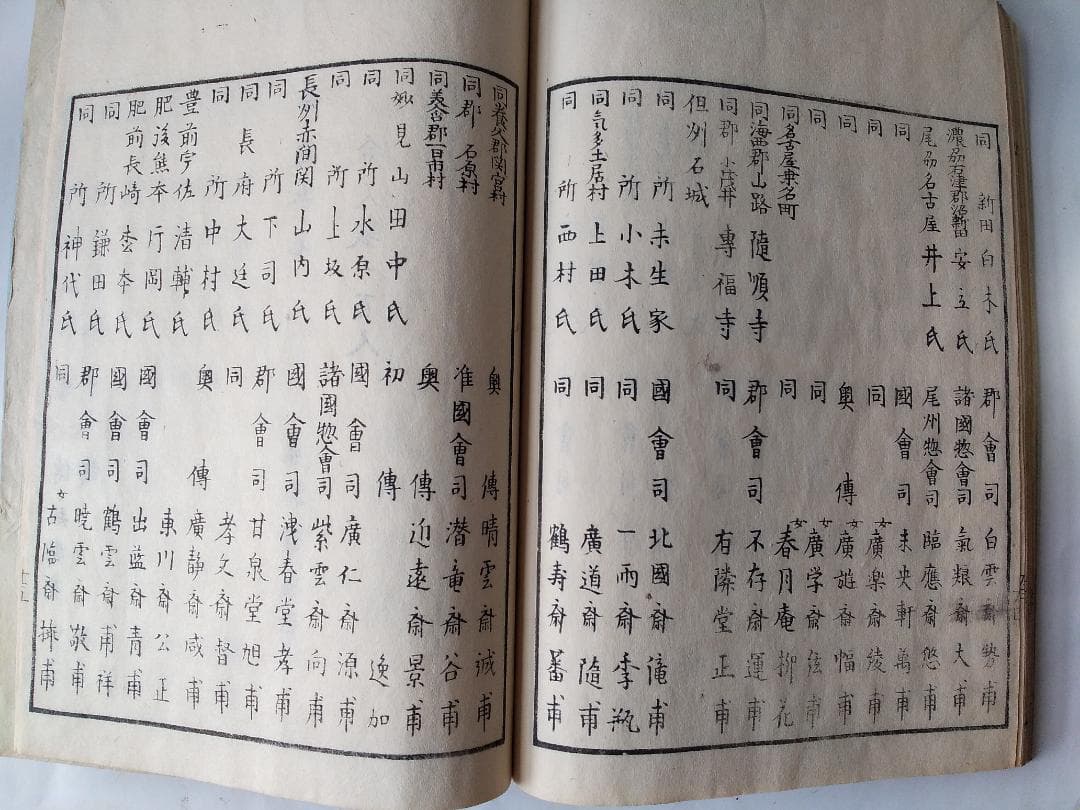 同 新田白木氏 郡會司 白雲斎 甫
濃刕石津郡 安立氏 諸國惣會司 氣銀斎大甫
尾刕名古屋 井上氏 尾州惣會司 臨應斎悠甫
同 國會司 未央軒萬甫
同 同 女 廣楽斎綾甫
同 奥傳 女 廣遊斎幅甫
同 同 女 廣学斎弦甫
同名古屋 桑名町 同 女 春月庵柳花
同海西郡山路 隨順寺 郡會司 不存斎運甫
同郡 專福寺 同 有隣堂正甫
但州石城
同所 未生家 國會司 北國斎 甫
同所 小木氏 同 一雨斎季瓶
同気多土居村 上田氏 同 廣道斎隨甫
同所 西村氏 同 鶴寿斎蕃甫
同養父郡関宮村 奥傳 晴雲斎誠甫
同郡 石原村 准國會司 潜竜斎谷甫
同美含郡一日市村 奥傳 迎遠斎景甫
同妙見山 田中氏 初傳 逸加
同所 水原氏 國會司 廣仁斎源甫
同所 上坂氏 諸國惣會司 紫雲斎向甫
長州赤間関 山内氏 國會司 洩春堂孝甫
同所 下司氏 郡會司 甘泉堂旭甫
同長府 大廷氏 同 孝文斎督甫
同所 中村氏 奥傳 廣静斎咸甫
豊前宇佐 清輔氏 東川公正
肥後熊本 片岡氏 國會司 出藍斎青甫
肥前長崎 杢本氏 國會司 鶴雲斎祥甫
同所 鎌田氏 郡會司 暁雲斎敬甫
同所 神代氏 同 女 古臨斎 甫
十五